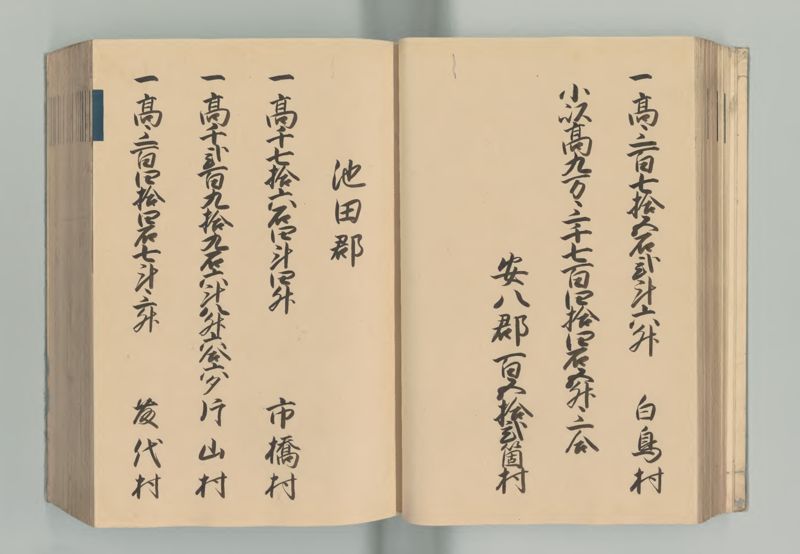 一高三百七拾五石弐斗六升 白鳥村
小以高九万三千七百四拾四石五升三合
安八郡百五拾弐箇村
池田郡
一高千七拾六石四斗四升 市橋村
一高千弐百九拾九石六斗八升五合六夕 片山村
一高三百四拾四石七斗三升 萩代村